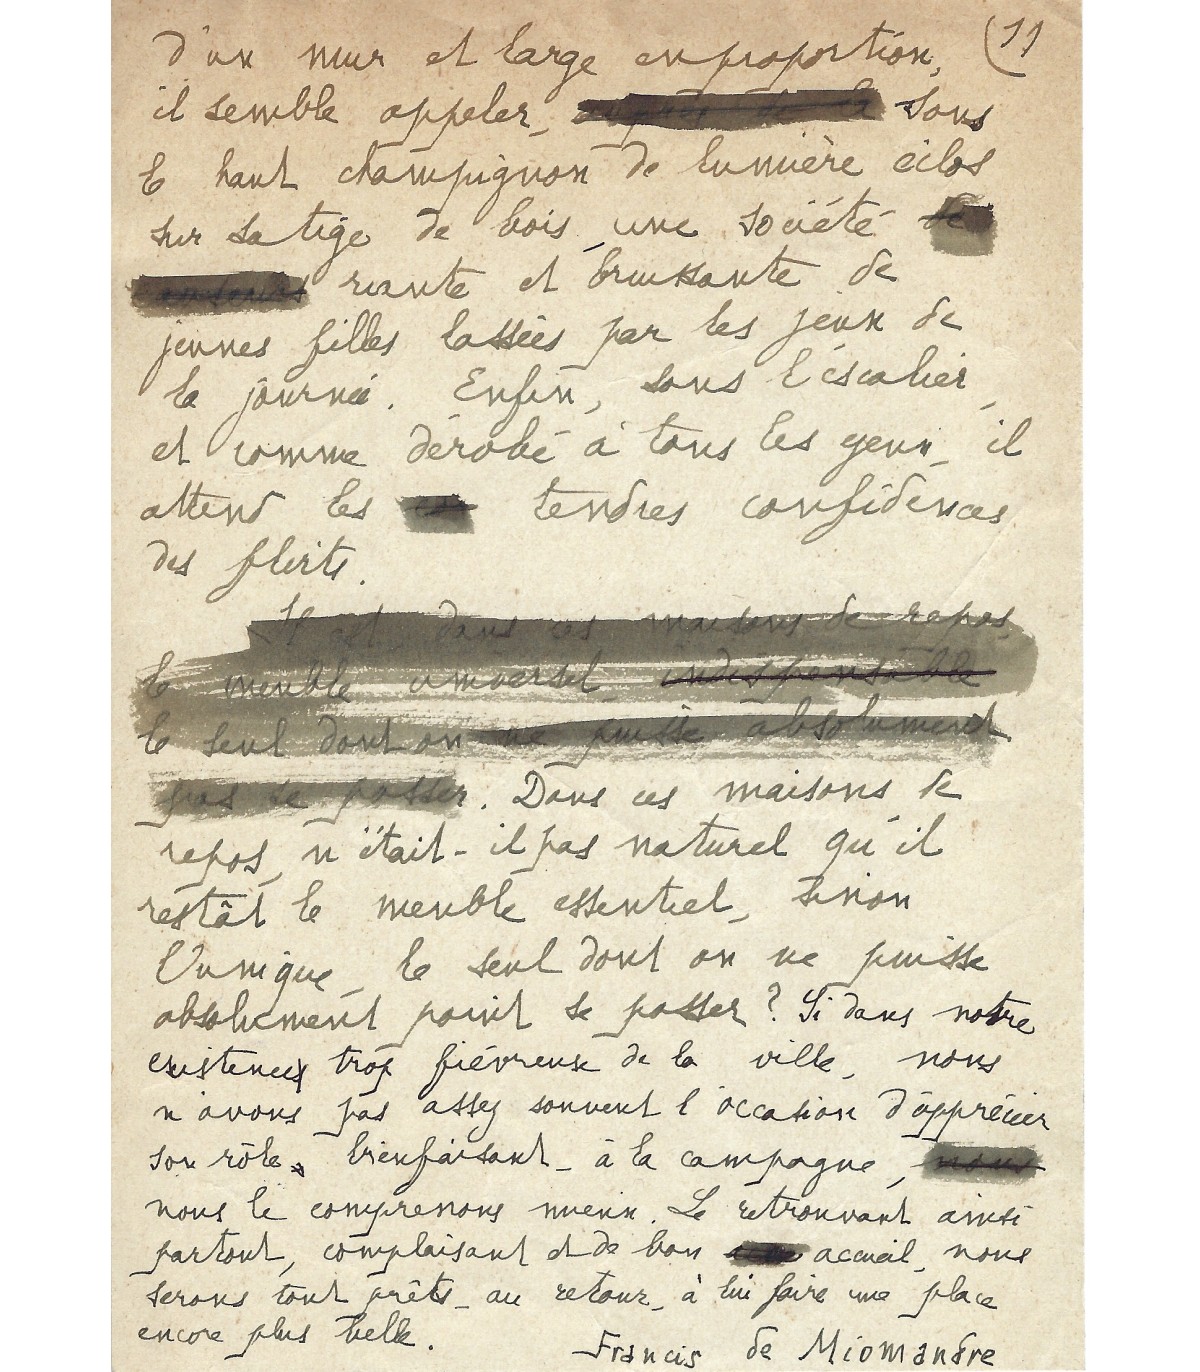 d'un mur et large en proportion, (11
il semble appeler, auprès de la sous
le haut champignon de lumière éclos
sur sa tige de bois, une société de
riante et bruissante de
jeunes filles lassées par les jeux de
la journée. Enfin, sous l'escalier,
et comme dérobé à tous les yeux, il
attend les tendres confidences
des flirts.
Il est, dans ces maisons de repos,
le meuble universel, indispensable
le seul dont on ne puisse absolument
pas se passer. Dans ces maisons de
repos, n'était-il pas naturel qu'il
restât le meuble essentiel, sinon
l'unique, le seul dont on ne puisse
absolument point se passer? Si dans notre
existence trop fiévreuse de la ville, nous
n'avons pas assez souvent l'occasion d'apprécier
son rôle bienfaisant, à la campagne, nous
nous le comprenons mieux. Le retrouvant ainsi
partout, complaisant et de bon accueil, nous
serons tout prêts, au retour, à lui faire une place
encore plus belle.
Francis de Miomandre